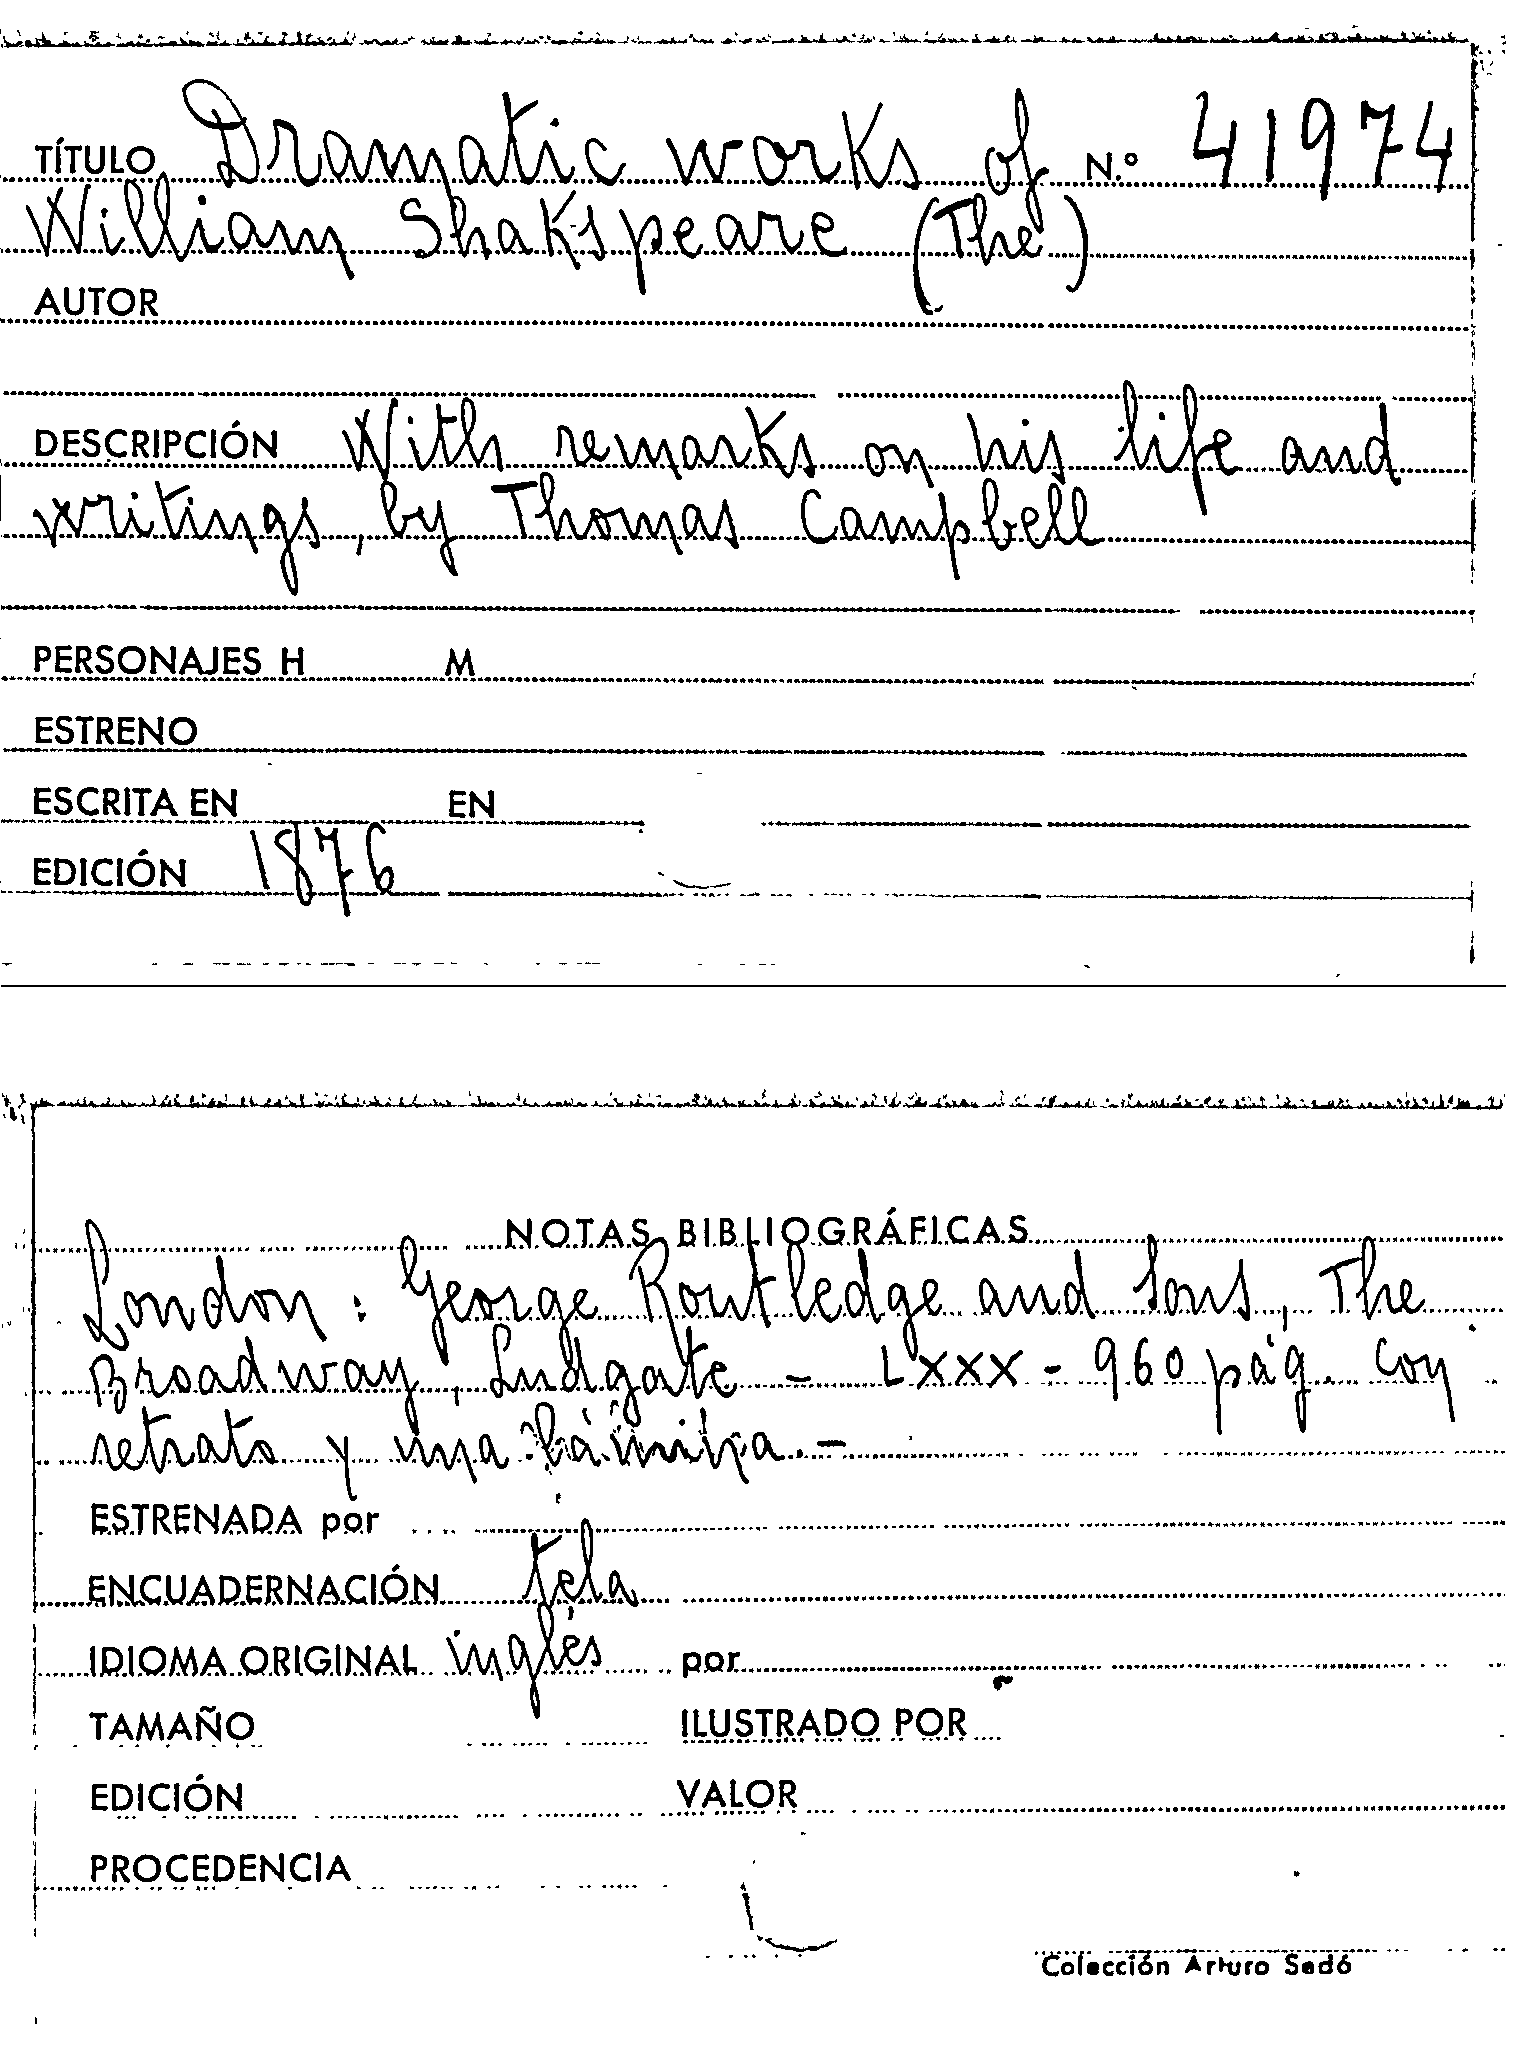 TÍTULO Dramatic works of N.º 41974
William Shakspeare (The)
AUTOR
DESCRIPCIÓN With remarks on his life and
writings, by Thomas Campbell
PERSONAJES H M
ESTRENO
ESCRITA EN EN
EDICIÓN 1876
NOTAS BIBLIOGRÁFICAS
London: George Routledge and Sons, The
Broadway, Ludgate - LXXX - 960 pág. con
retrato y una lámina.-
ESTRENADA por
ENCUADERNACIÓN tela
IDIOMA ORIGINAL inglés por
TAMAÑO ILUSTRADO POR
EDICIÓN VALOR
PROCEDENCIA
Colección Arturo Sedó